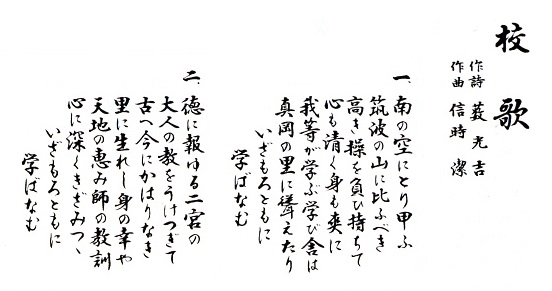 校歌
作詩 薮光吉
作曲 信時潔
一、南の空にとり甲ふ
筑波の山に比ふべき
高き操を負ひ持ちて
心も清く身も爽に
我等が学ぶ学び舎は
真岡の里に聳えたり
いざもろともに
学ばなむ
二、徳に報ゆる二宮の
大人の教をうけつぎて
古へ今にかはりなき
里に生れし身の幸や
天地の恵み師の教訓
心に深くきざみつゝ
いざもろともに
学ばなむ